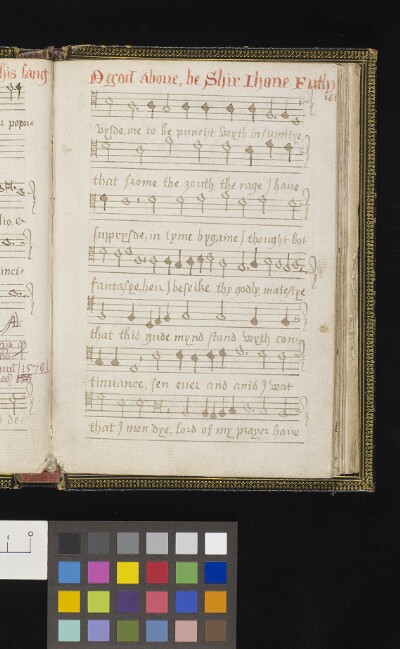 his sang
O god above, be Shir Ihone Futhy
vysde, me to be puneist wyth infirmitye
that frome the zouth the rage I have
suppryside, in tyme bygaine I thought bot
fantasye, heir I beseike thy godly maiestye
that this gude mynd stand wyth con
tinuance, sen ever and anis I wat
that I mon dye, lord of my prayer have
1576